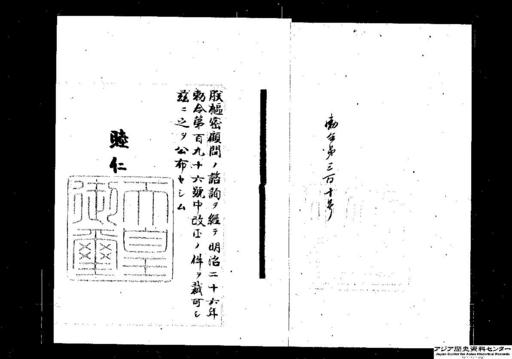 勅令第三百十号
朕樞密顧問ノ諮詢ヲ經テ明治二十六年
勅令第百九十六號中改正ノ件ヲ裁可シ
茲ニ之ヲ公布セシム
睦仁
天皇
御璽
アジア歴史資料センター
Japan Center for Asian Historical Records